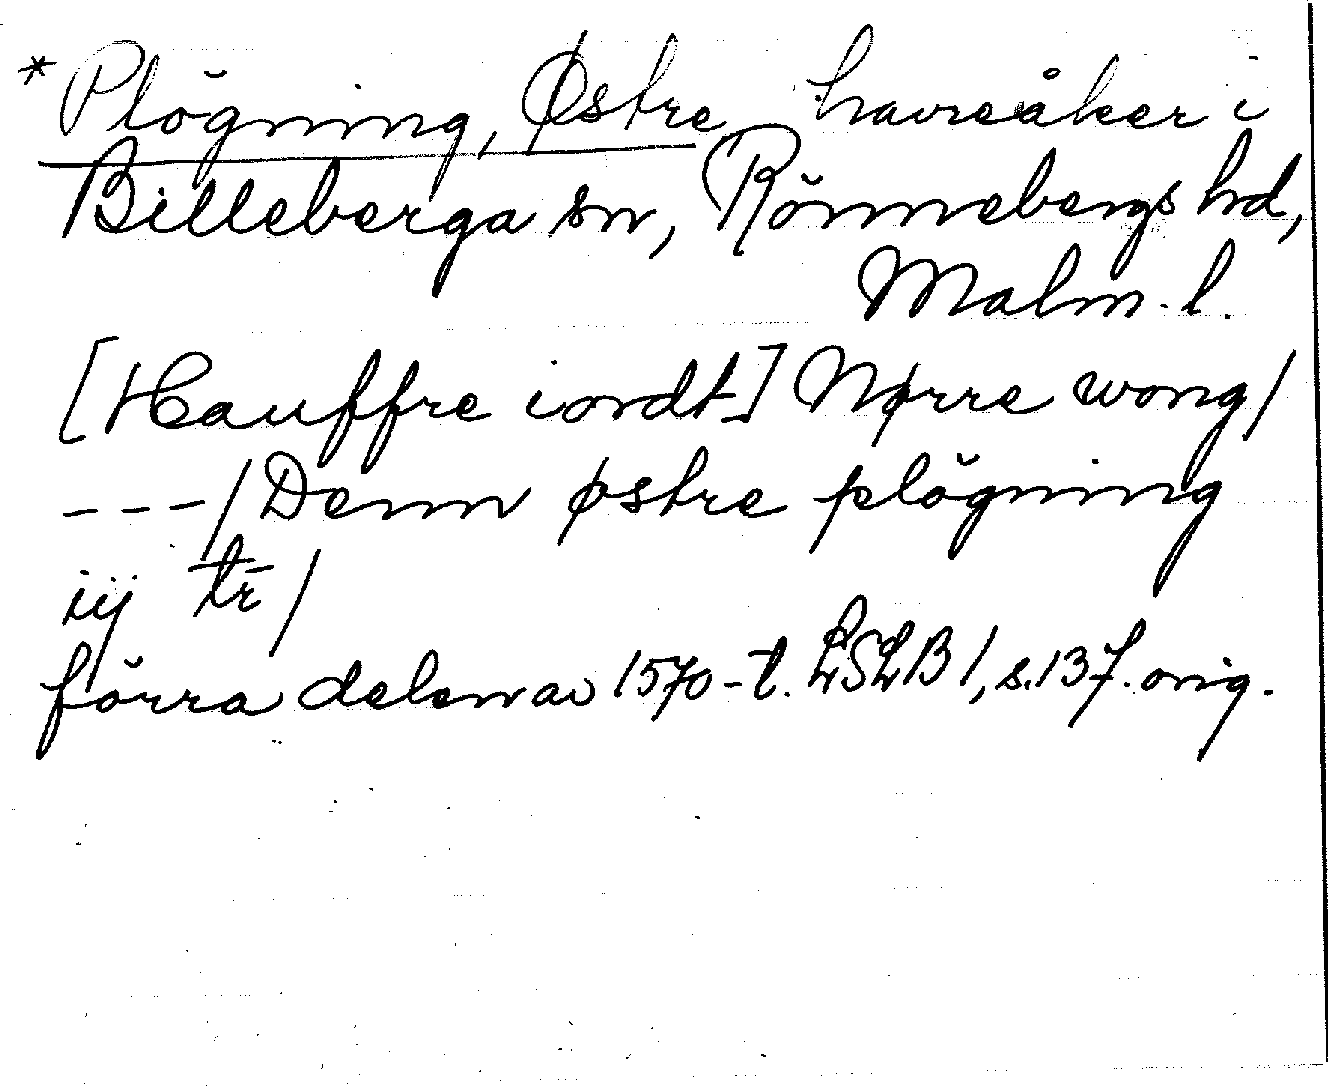 *Plögning, Østre havreåker i
Billeberga sn, Rönnebergs hd,
Malm. l.
[Hauffre iordt] Nørre wong/
---/Denn østre plögning
iij tr̄/
förra delen av 1570-t. LSLB 1, s.137. orig.